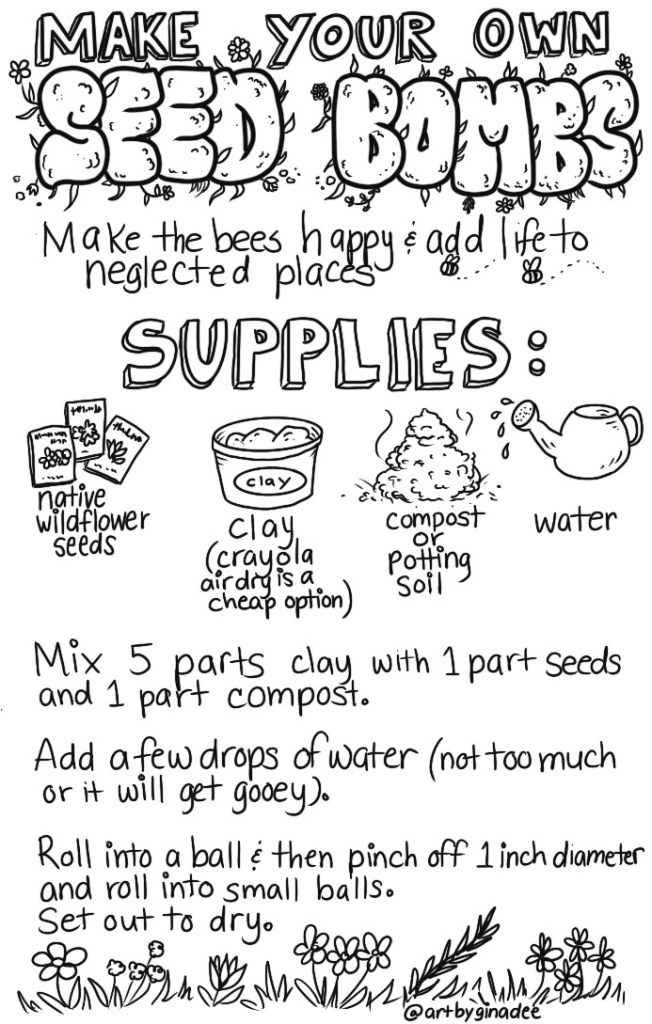 MAKE YOUR OWN
SEED BOMBS
Make the bees happy & add life to
neglected places
SUPPLIES:
native
wildflower
seeds
clay
clay
(crayola
air dry is a
cheap option)
compost
or
potting
soil
water
Mix 5 parts clay with 1 part seeds
and 1 part compost.
Add a few drops of water (not too much
or it will get gooey).
Roll into a ball & then pinch off 1 inch diameter
and roll into small balls.
Set out to dry.
@artbyginadee